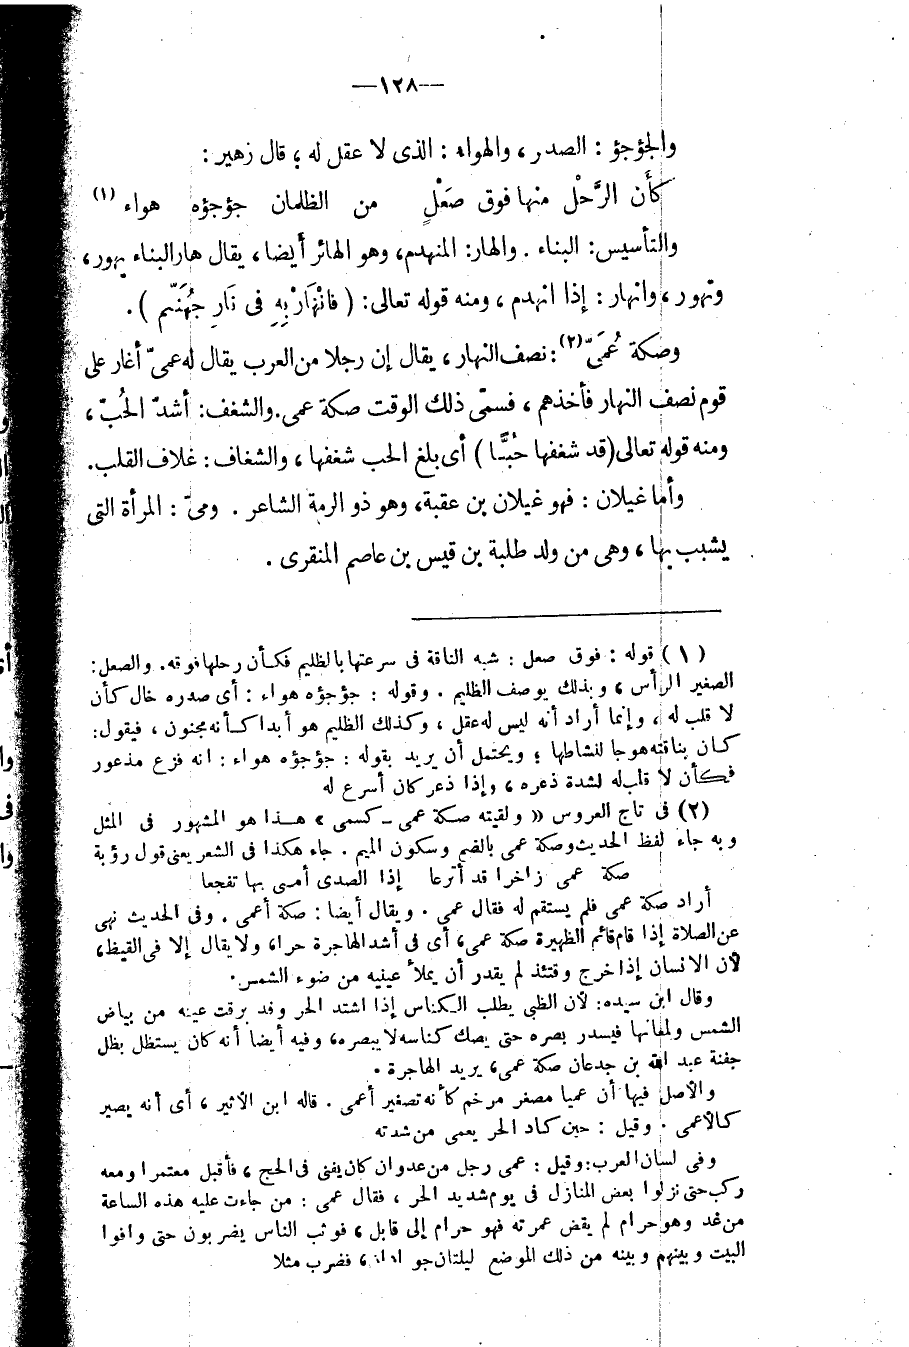 —١٢٨—
والجؤجؤ : الصدر ، والهواء : الذى لا عقل له ؛ قال زهير :
كأَن الرَّحْل منها فوق صَعْلٍ من الظلمان جؤجؤه هواء (١)
والتأسيس : البناء . والهار : المنهدم، وهو الهائر أيضا ، يقال هار البناء يهور ،
وتهور ، وانهار : إذا انهدم ، ومنه قوله تعالى : ( فانْهَارَ بِهِ فى نَارِ جُهَنّم ) .
وصكة عُمَىّ (٢) : نصف النهار ، يقال إن رجلا من العرب يقال له عمىّ أغار على
قوم نصف النهار فأخذهم ، فسمّى ذلك الوقت صكة عمى . والشغف : أشدّ الحُبّ ،
ومنه قوله تعالى (قد شغفها حُبًّا ) أى بلغ الحب شغفها ، والشغاف : غلاف القلب .
وأما غيلان : فهو غيلان بن عقبة، وهو ذو الرمة الشاعر . ومىّ : المرأة التى
يشبب بها ، وهى من ولد طلبة بن قيس بن عاصم المنقرى .
( ١ ) قوله : فوق صعل : شبه الناقة فى سرعتها بالظليم فكأن رحلها فوقه. والصعل :
الصغير الرأس ، وبذلك يوصف الظليم . وقوله : جؤجؤه هواء : أى صدره خال كأن
لا قلب له ، وإنما أراد أنه ليس له عقل ، وكذلك الظليم هو أبدا كأنه مجنون ، فيقول :
كان بناقته هوجا لنشاطها ؛ ويحتمل أن يريد بقوله : جؤجؤه هواء : انه فزع مذعور
فكأن لا قلب له لشدة ذعره ، وإذا ذعر كان أسرع له
(٢) فى تاج العروس « ولقيته صكة عمى – كسمى » هذا هو المشهور فى المثل
وبه جاء لفظ الحديث وصكة عمى بالضم وسكون الميم . جاء هكذا فى الشعر يعنى قول رؤبة
صكة عمى زاخرا قد أترعا إذا الصدى أمسى بها تفجعا
أراد صكة عمى فلم يستقم له فقال عمى . ويقال أيضا : صكة أعمى . وفى الحديث نهى
عن الصلاة إذا قام قائم الظهيرة صكة عمى، أى فى أشد الهاجرة حرا، ولا يقال إلا فى القيظ،
لأن الانسان إذا خرج وقتئذ لم يقدر أن يملأ عينيه من ضوء الشمس .
وقال ابن سيده : لأن الظبى يطلب الكناس إذا اشتد الحر وقد برقت عينه من بياض
الشمس ولمعانها فيسدر بصره حتى يصك كناسه لا يبصره، وفيه أيضا أنه كان يستظل بظل
جفنة عبد الله بن جدعان صكة عمى، يريد الهاجرة .
والأصل فيها أن عميا مصغر مرخم كأنه تصغير أعمى . قاله ابن الأثير ، أى أنه يصير
كالأعمى . وقيل : حين كاد الحر يعمى من شدته
وفى لسان العرب : وقيل : عمى رجل من عدوان كان يفتى فى الحج ، فأقبل معتمرا ومعه
ركب حتى نزلوا بعض المنازل فى يوم شديد الحر ، فقال عمى : من جاءت عليه هذه الساعة
من غد وهو حرام لم يقض عمرته فهو حرام إلى قابل ، فوثب الناس يضربون حتى وافوا
البيت وبينهم وبينه من ذلك الموضع ليلتان ، فضرب مثلا